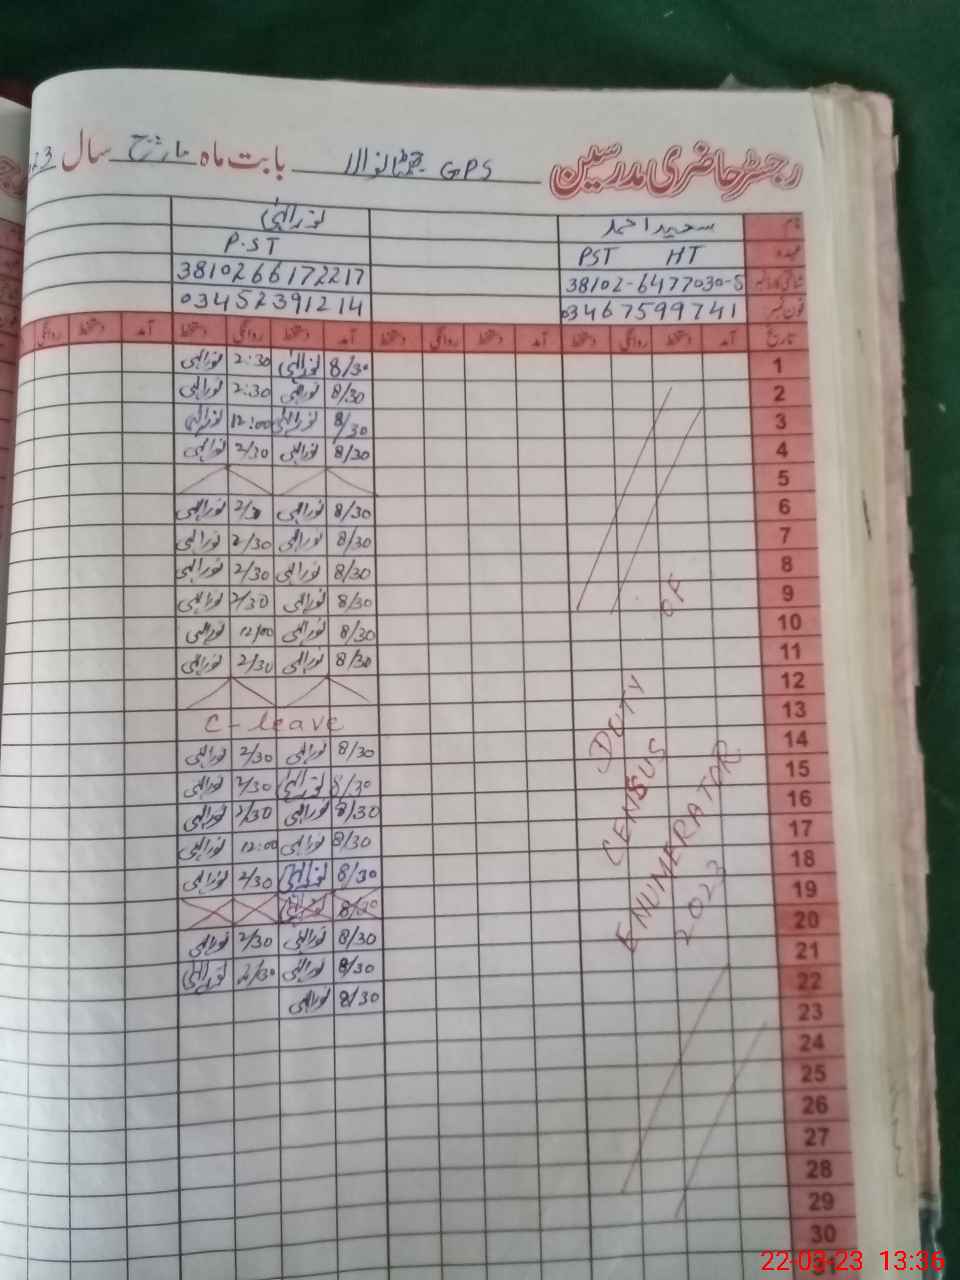 رجسٹر حاضری مدرسین GPS بابت ماہ مارچ سال 23
نام سعید احمد نور الہٰی
عہدہ PST HT P.ST
شناختی کارڈ نمبر 38102-6477030-5 3810266172217
فون نمبر 03467599741 03452391214
تاریخ آمد دستخط روانگی دستخط آمد دستخط روانگی دستخط آمد دستخط روانگی دستخط آمد دستخط روانگی
1 8/30 نور الہٰی 2:30 نور الہٰی
2 8/30 نور الہٰی 2:30 نور الہٰی
3 8/30 نور الہٰی 12:00 نور الہٰی
4 8/30 نور الہٰی 2/30 نور الہٰی
5
6 8/30 نور الہٰی 2/30 نور الہٰی
7 8/30 نور الہٰی 2/30 نور الہٰی
8 8/30 نور الہٰی 2/30 نور الہٰی
9 8/30 نور الہٰی 2/30 نور الہٰی
10 8/30 نور الہٰی 12/00 نور الہٰی
11 8/30 نور الہٰی 2/30 نور الہٰی
12
13 C-leave
14 8/30 نور الہٰی 2/30 نور الہٰی
15 8/30 نور الہٰی 2/30 نور الہٰی
16 8/30 نور الہٰی 2/30 نور الہٰی
17 8/30 نور الہٰی 12:00 نور الہٰی
18 8/30 نور الہٰی 2/30 نور الہٰی
19 8/30 نور الہٰی
20 8/30 نور الہٰی 2/30 نور الہٰی
21 8/30 نور الہٰی 2/30 نور الہٰی
22 8/30 نور الہٰی
23
24
25
26
27
28
29
30
OF
DUTY
CENSUS
ENUMERATOR
2023
22-03-23 13:36